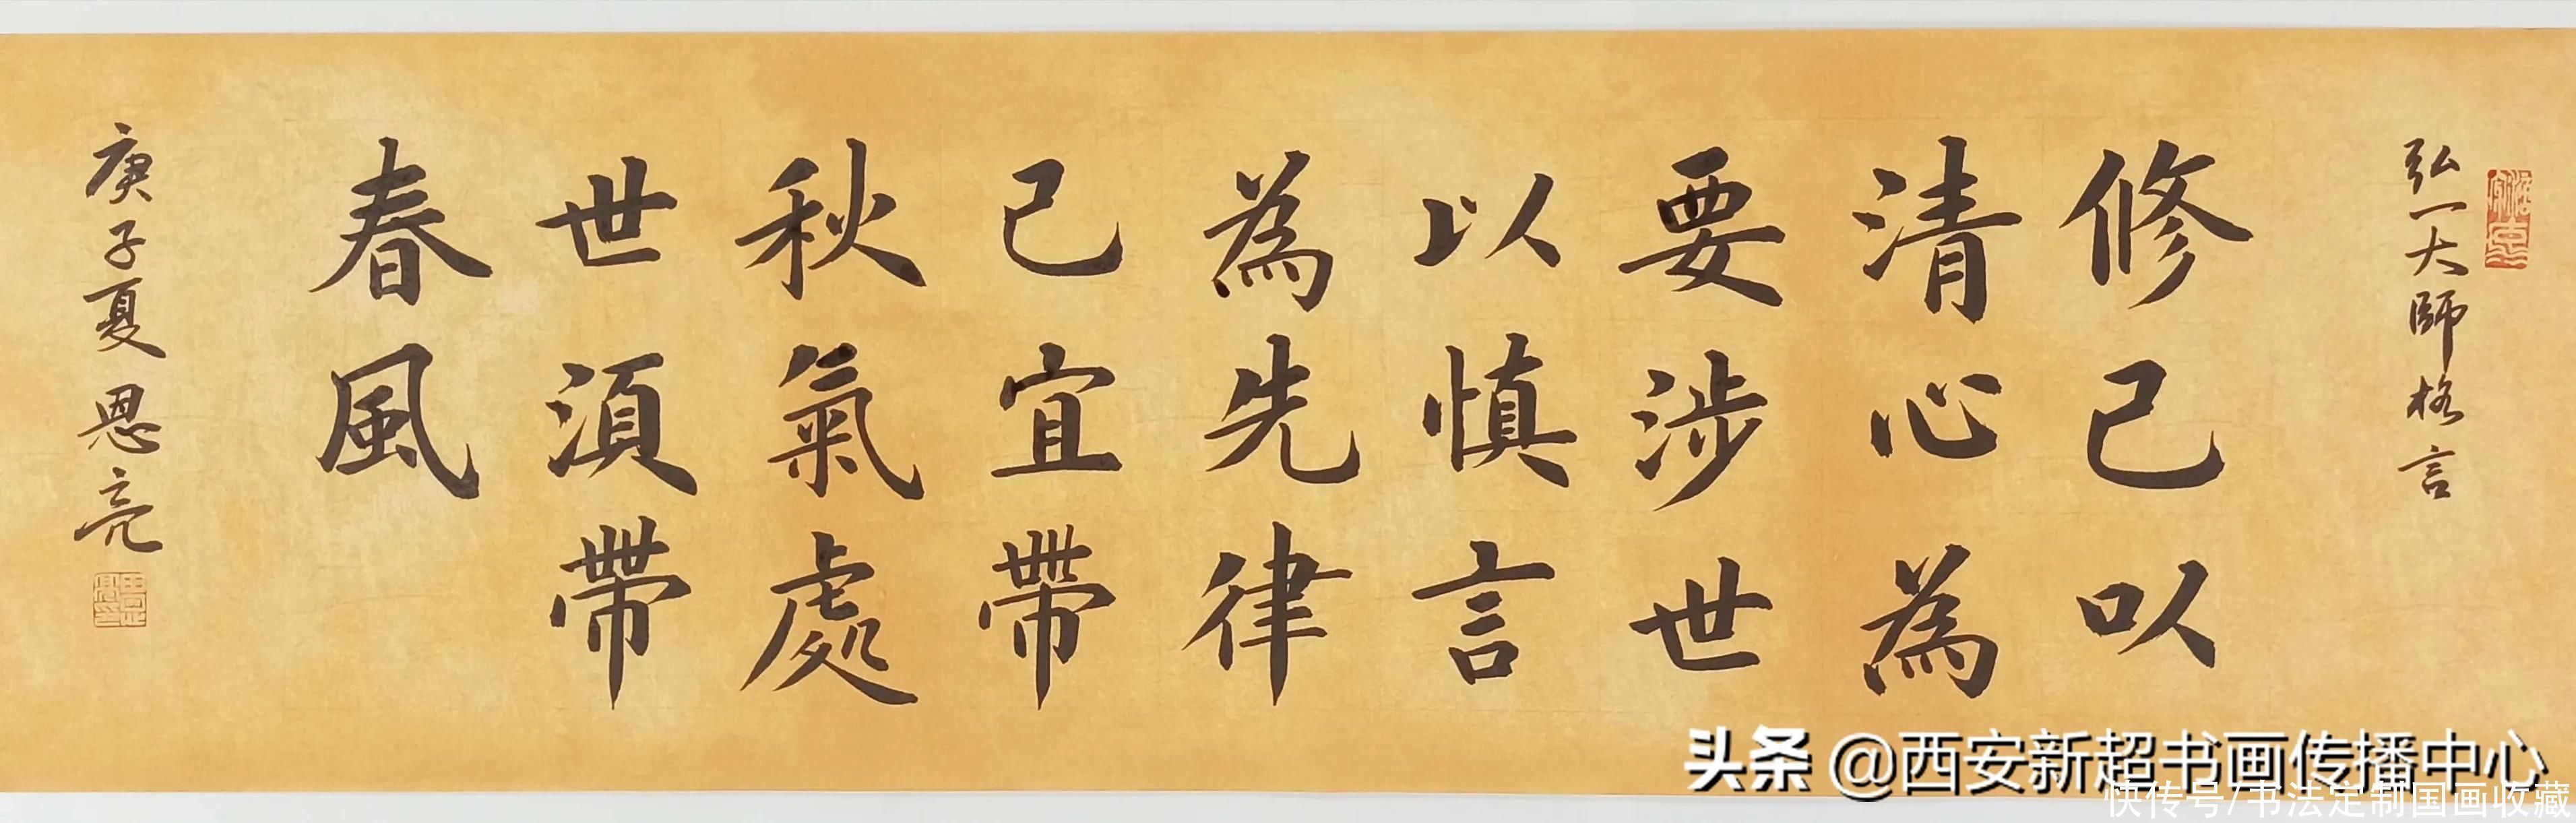 弘一大師格言
修己以
清心為
要涉世
以慎言
為先律
己宜帶
秋氣處
世須帶
春風
庚子夏恩亮
头条 @西安新超书画传播中心
快传号/书法定制国画收藏